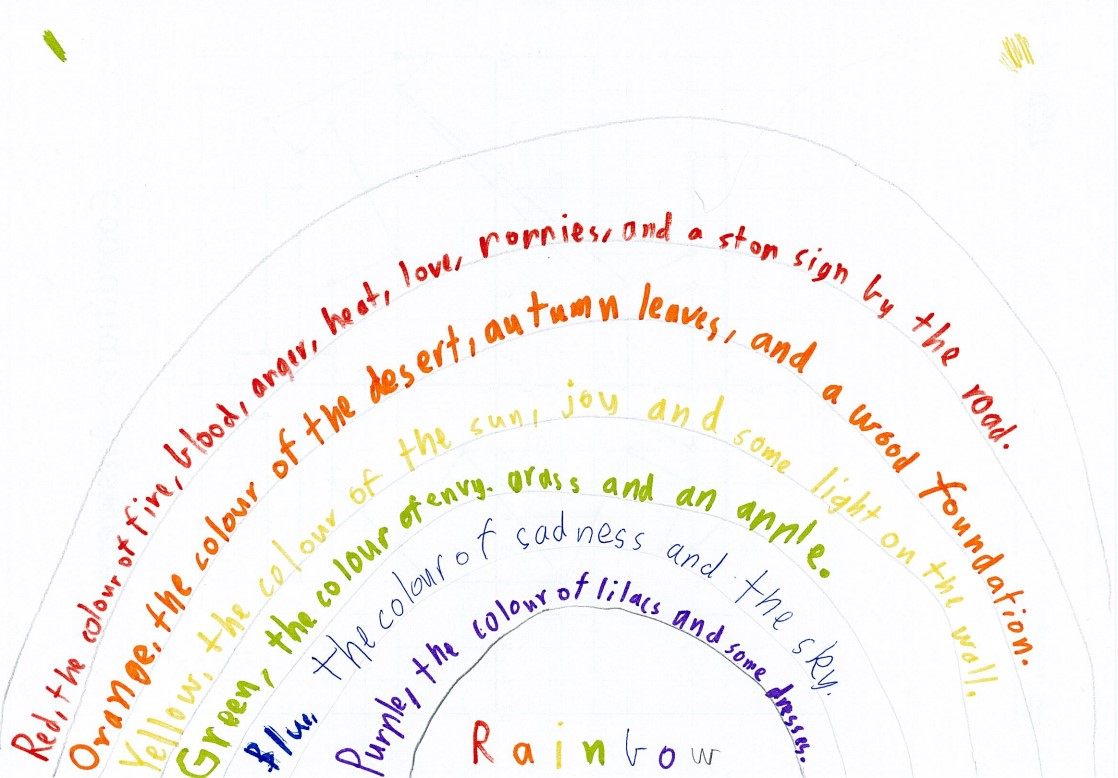 Red, the colour of fire, blood, anger, heat, love, roppies, and a stop sign by the road.
Orange, the colour of the desert, autumn leaves, and a wood foundation.
Yellow, the colour of the sun, joy and some light on the wall.
Green, the colour of envy. grass and an apple.
Blue, the colour of sadness and the sky.
Purple, the colour of lilacs and some dresses.
Rainbow